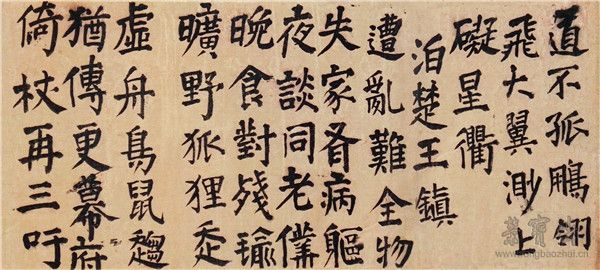 道不孤鵬翎
飛大翼渺上
礙星衢
泊楚王鎮
遭亂難全物
失家吝病軀
夜談同老僕
晚食對殘
曠野狐狸走
虛舟鳥鼠趨
猶傳更幕府
倚杖再三吁
www.rongbaozhai.cn